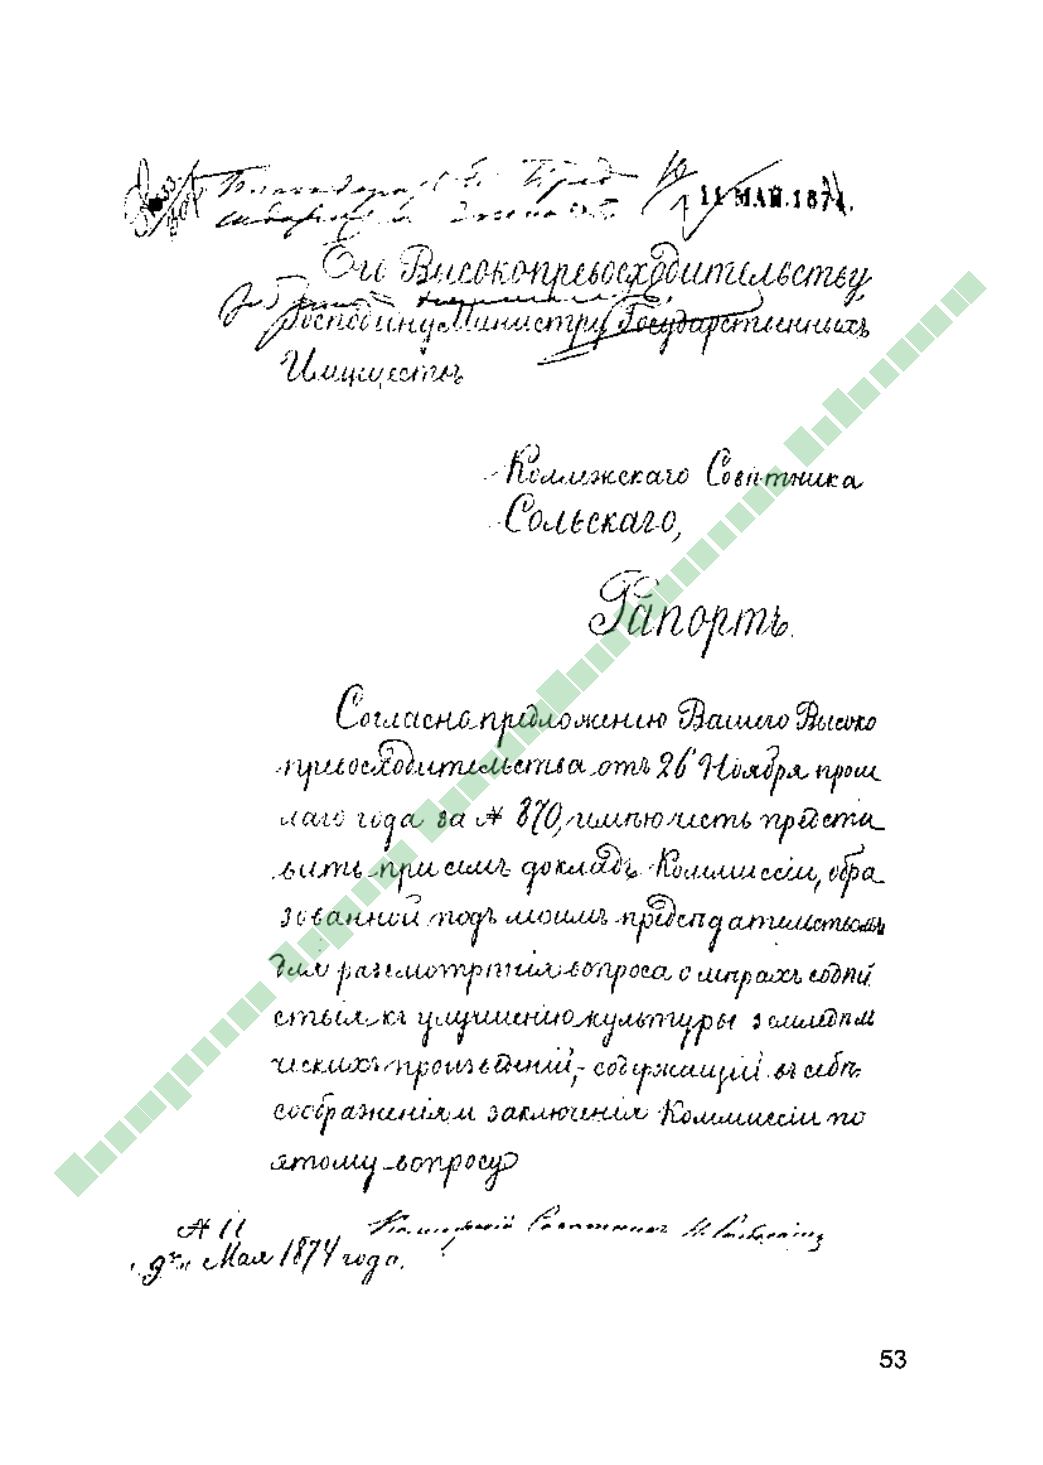 11 МАЙ.1874.
Его Высокопревосходительству,
Господину Министру Государственныхъ
Имуществъ
Коллежскаго Совѣтника
Сольскаго,
Рапортъ.
Согласно предложенію Вашего Высоко
превосходительства отъ 26 Ноября прош
лаго года за № 870, имѣю честь предста
вить при семъ докладъ Коммиссіи, обра
зованной подъ моимъ предсѣдательствомъ
для разсмотрѣнія вопроса о мѣрахъ содѣй
ствія къ улучшенію культуры земледѣль
ческихъ произведеній, содержащій въ себѣ
соображенія и заключенія Коммиссіи по
этому вопросу
№ 11
Коллежскій Совѣтникъ
9го Мая 1874 года.
53